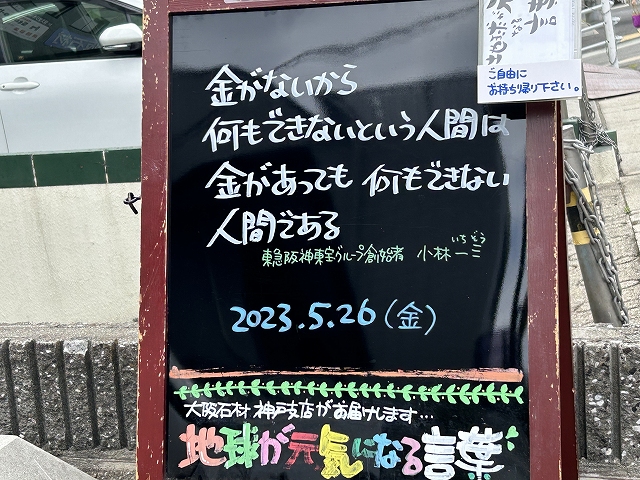 ご自由に
お持ち帰り下さい。
金がないから
何もできないという人間は
金があっても 何もできない
人間である
東急阪神東宝グループ創始者 小林一三
いちぞう
2023.5.26(金)
大阪石材 神戸支店がお届けします…
地球が元気になる言葉